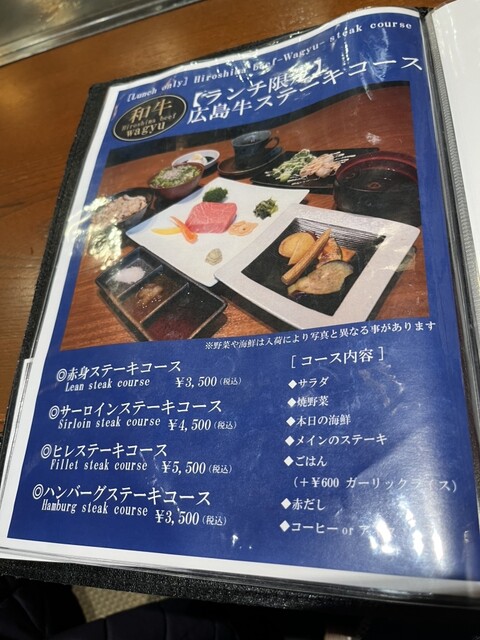 [Lunch only] Hiroshima beef-Wagyu- steak course
【ランチ限定】
広島牛ステーキコース
和牛
Hiroshima beef
wagyu
※野菜や海鮮は入荷により写真と異なる事があります
◎赤身ステーキコース
Lean steak course ¥3,500(税込)
◎サーロインステーキコース
Sirloin steak course ¥4,500(税込)
◎ヒレステーキコース
Fillet steak course ¥5,500(税込)
◎ハンバーグステーキコース
Hamburg steak course ¥3,500(税込)
[コース内容]
◆サラダ
◆焼野菜
◆本日の海鮮
◆メインのステーキ
◆ごはん
(＋¥600 ガーリックライス)
◆赤だし
◆コーヒー or